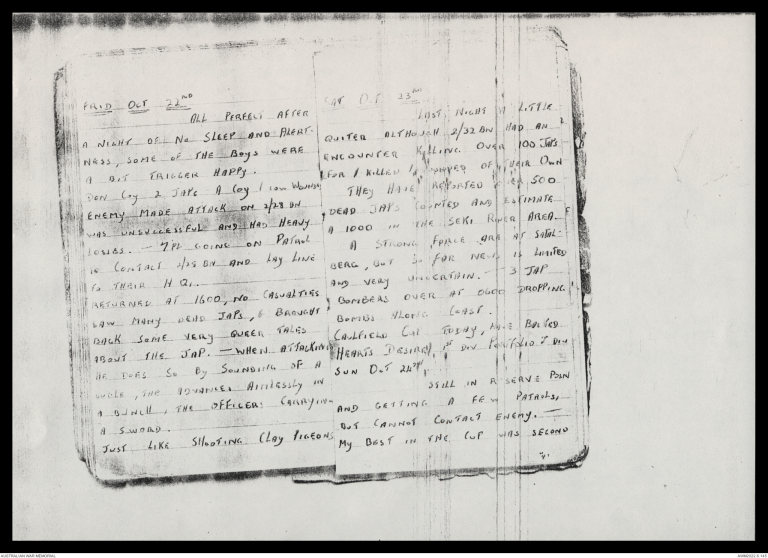 FRID OCT 22ND
ALL PERFECT AFTER
A NIGHT OF NO SLEEP AND ALERT-
NESS, SOME OF THE BOYS WERE
A BIT TRIGGER HAPPY.
DON COY 2 JAPS A COY 1 OWN WOUNDED
ENEMY MADE ATTACK ON 2/28 BN
WAS UNSUCCESSFUL AND HAD HEAVY
LOSSES. — 7 PL GOING ON PATROL
TO CONTACT 2/25 BN AND LAY LINE
TO THEIR H.Q.
RETURNED AT 1600, NO CASUALTIES
SAW MANY DEAD JAPS, & BROUGHT
BACK SOME VERY QUEER TALES
ABOUT THE JAP. — WHEN ATTACKING
HE DOES SO BY SOUNDING OF A
BUGLE, THE ADVANCE AIMLESSLY IN
A BUNCH, THE OFFICERS CARRYING
A SWORD.
JUST LIKE SHOOTING CLAY PIGEONS
SAT OCT 23RD
LAST NIGHT A LITTLE
QUITER ALTHOUGH 2/32 BN HAD AN
ENCOUNTER KILLING OVER 100 JAPS
FOR 1 KILLED OF THEIR OWN
THEY HAVE REPORTED OVER 500
DEAD JAPS COUNTED AND ESTIMATE
A 1000 IN THE SEKI RIVER AREA.
A STRONG FORCE ARE AT SATAL-
BERG, BUT SO FAR NEWS IS LIMITED
AND VERY UNCERTAIN. — 3 JAP
BOMBERS OVER AT 0600 DROPPING
BOMBS ALONG COAST.
CAULFIELD CUP TODAY, HAVE BACKED
HEARTS DESIRE, 1ST DIV PORTFOLIO 2 DIV
SUN OCT 24TH
STILL IN RESERVE POSN
AND GETTING A FEW PATROLS,
BUT CANNOT CONTACT ENEMY. —
MY BEST IN THE CUP WAS SECOND
AUSTRALIAN WAR MEMORIAL